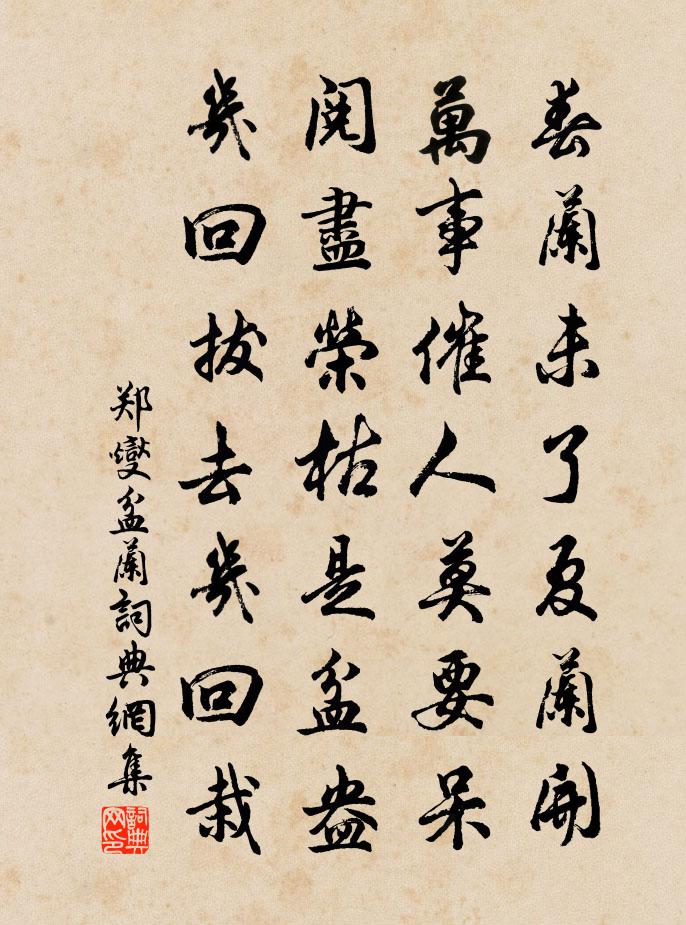 春蘭未了夏蘭開
萬事催人莫要呆
閱盡榮枯是盆盎
幾回拔去幾回栽
郑燮盆蘭詞典網集
詞典网印